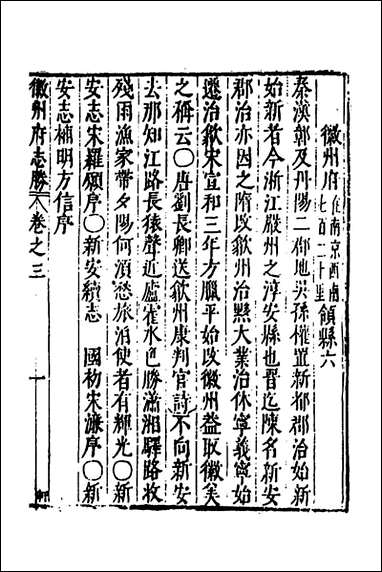 徽州府在南京西南七百二十里領縣六
秦漢鄣及丹陽二郡地吳孫權置新都郡治始新
始新者今浙江嚴州之淳安縣也晉迄陳名新安
郡治亦因之隋改歙州治黟大業治休寧義寧始
遷治歙宋宣和三年方臘平始改徽州葢取徽美
之稱云〇唐劉長卿送歙州康判官詩不向新安
去那知江路長猿聲近廬霍水色勝瀟湘驛路收
殘雨漁家帶夕陽何須愁旅泊使者有輝光〇新
安志宋羅願序〇新安續志 國初宋濂序〇新
安志補明方信序
徽州府志勝 卷之三 一